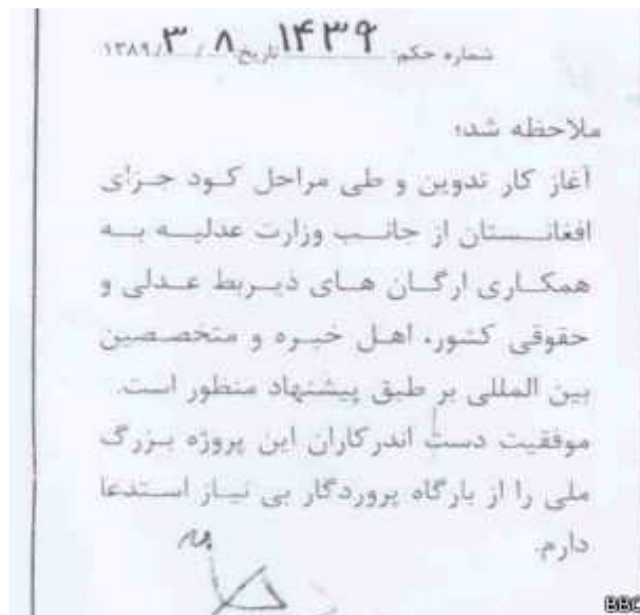 شماره حکم: ۱۴۳۹ تاریخ ۸ / ۳ / ۱۳۸۹
ملاحظه شد؛
آغاز کار تدوین و طی مراحل کود جزای
افغانستان از جانب وزارت عدلیه به
همکاری ارگان های ذیربط عدلی و
حقوقی کشور، اهل خبره و متخصصین
بین المللی بر طبق پیشنهاد منظور است.
موفقیت دست اندرکاران این پروژه بزرگ
ملی را از بارگاه پروردگار بی نیاز استدعا
دارم.
BBC